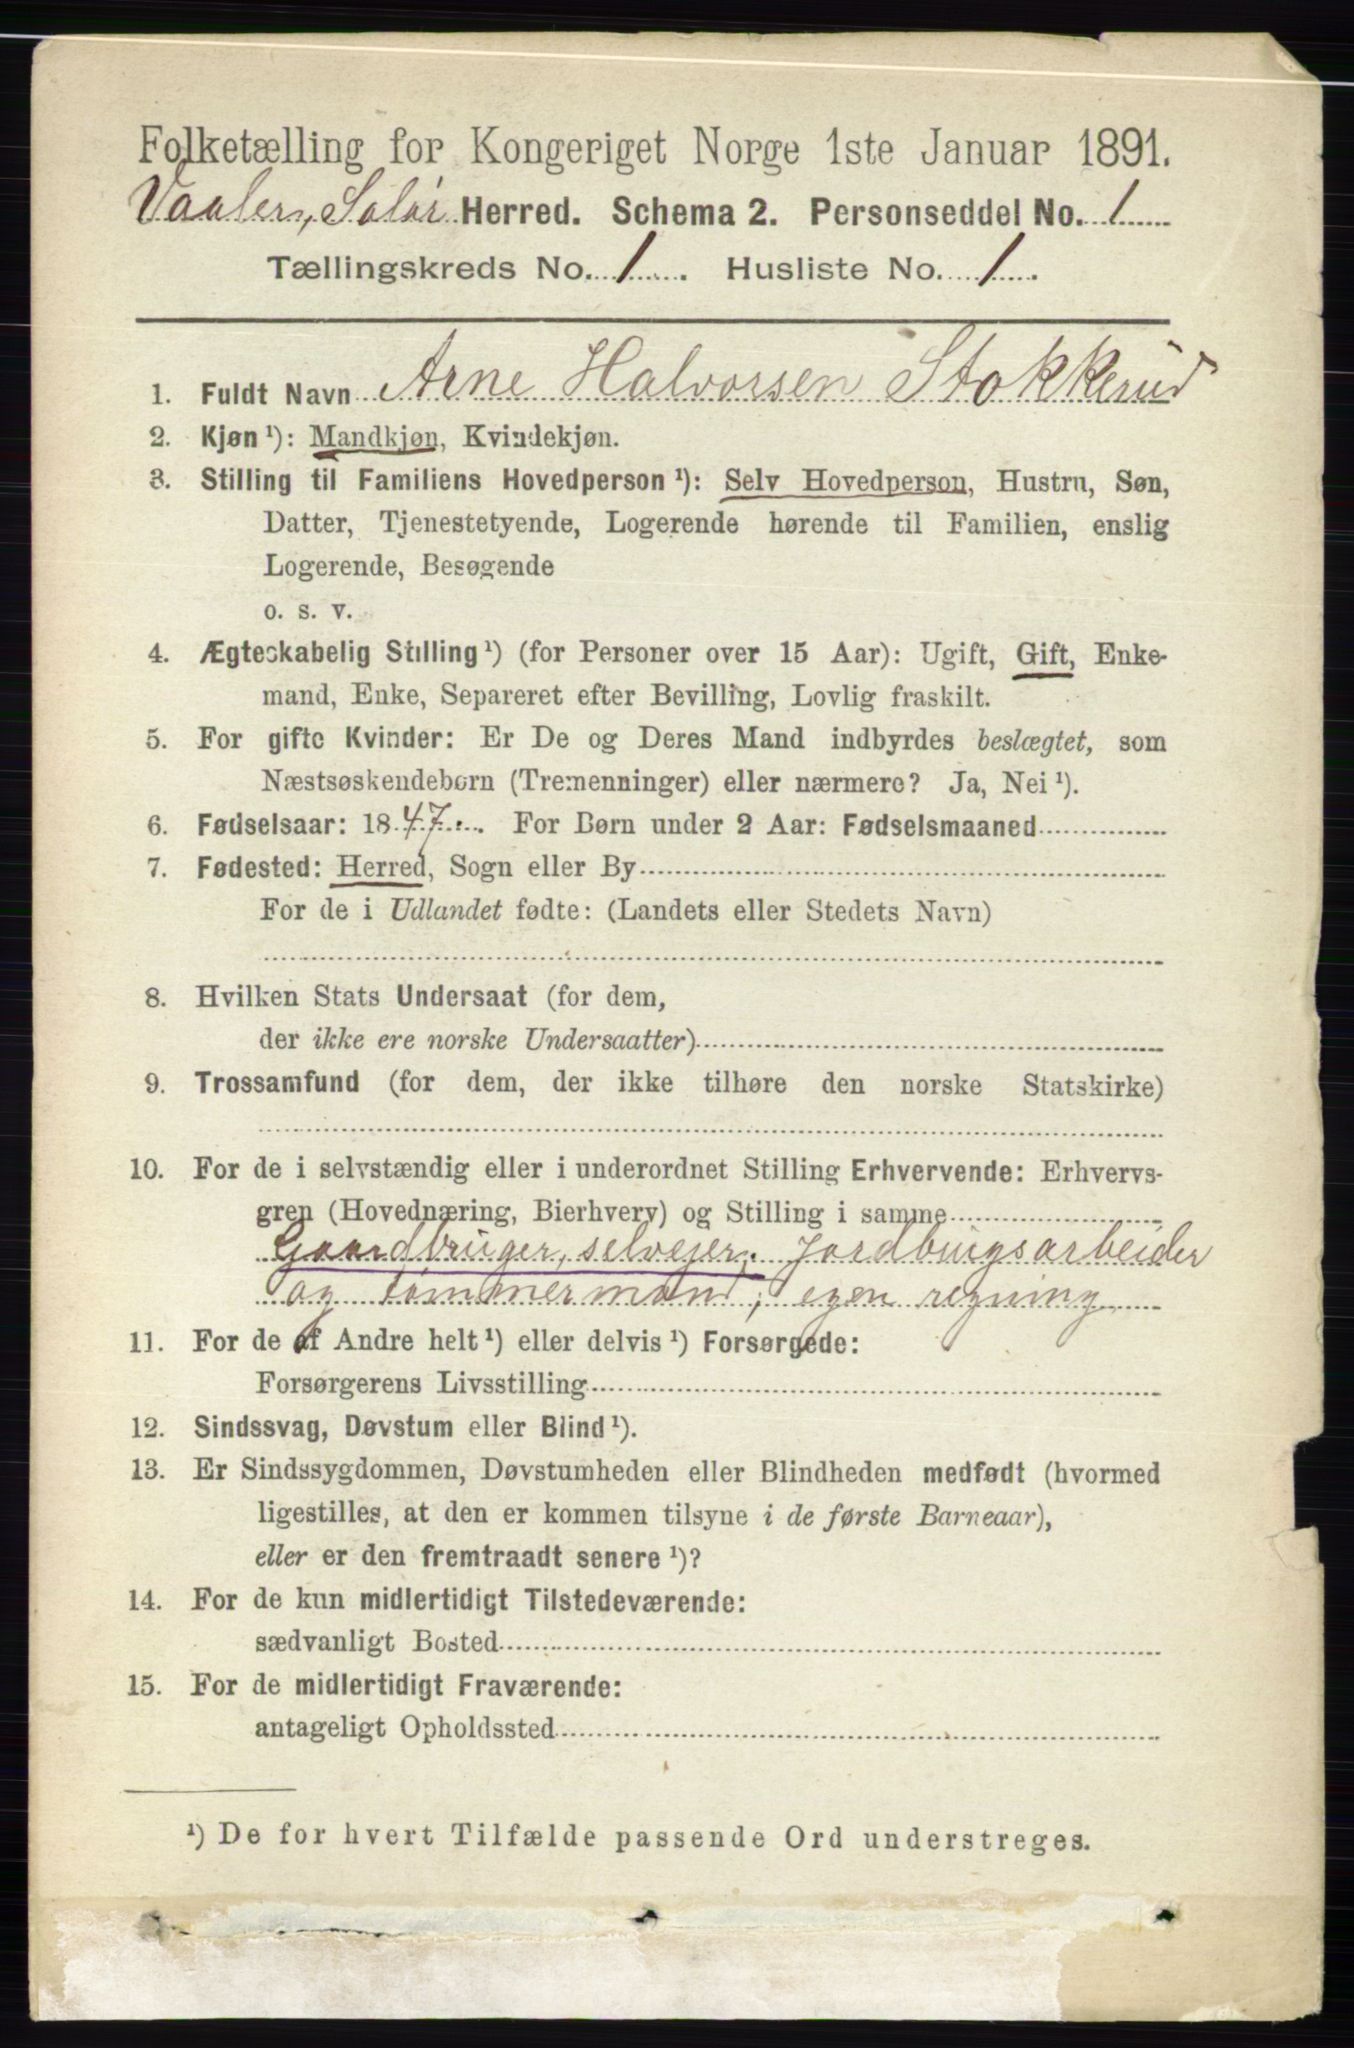 Folketælling for Kongeriget Norge 1ste Januar 1891.
Vaaler, Solør Herred. Schema 2. Personseddel No. 1
Tællingskreds No. 1. Husliste No. 1.
1. Fuldt Navn Arne Halvorsen Stokkerud
2. Kjøn ¹): Mandkjøn, Kvindekjøn.
3. Stilling til Familiens Hovedperson ¹): Selv Hovedperson, Hustru, Søn,
Datter, Tjenestetyende, Logerende hørende til Familien, enslig
Logerende, Besøgende
o. s. v.
4. Ægteskabelig Stilling ¹) (for Personer over 15 Aar): Ugift, Gift, Enke-
mand, Enke, Separeret efter Bevilling, Lovlig fraskilt.
5. For gifte Kvinder: Er De og Deres Mand indbyrdes beslægtet, som
Næstsøskendebørn (Tremenninger) eller nærmere? Ja, Nei ¹).
6. Fødselsaar: 1847. For Børn under 2 Aar: Fødselsmaaned
7. Fødested: Herred, Sogn eller By
For de i Udlandet fødte: (Landets eller Stedets Navn)
8. Hvilken Stats Undersaat (for dem,
der ikke ere norske Undersaatter)
9. Trossamfund (for dem, der ikke tilhøre den norske Statskirke)
10. For de i selvstændig eller i underordnet Stilling Erhvervende: Erhvervs-
gren (Hovednæring, Bierhverv) og Stilling i samme
Gaardbruger, selvejer, Jordbrugsarbeider
og tømmermand, egen regning
11. For de af Andre helt ¹) eller delvis ¹) Forsørgede:
Forsørgerens Livsstilling
12. Sindssvag, Døvstum eller Blind ¹).
13. Er Sindssygdommen, Døvstumheden eller Blindheden medfødt (hvormed
ligestilles, at den er kommen tilsyne i de første Barneaar),
eller er den fremtraadt senere ¹)?
14. For de kun midlertidigt Tilstedeværende:
sædvanligt Bosted
15. For de midlertidigt Fraværende:
antageligt Opholdssted
¹) De for hvert Tilfælde passende Ord understreges.